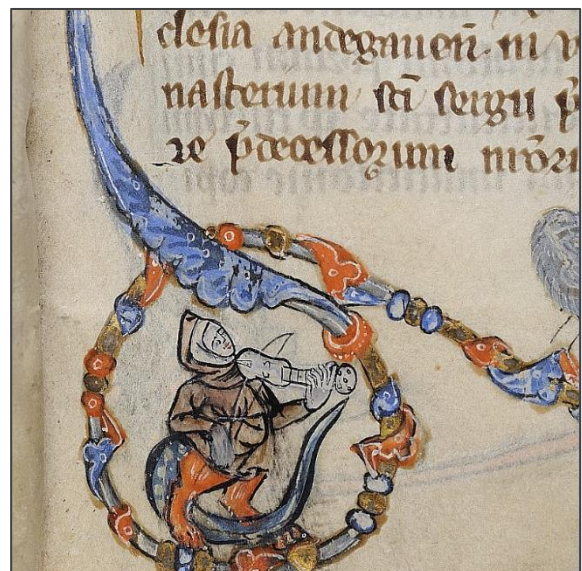 clesia andegaven̄ in v
nasterium sc̄i sergii p̄
re p̄decessorum nr̄ori